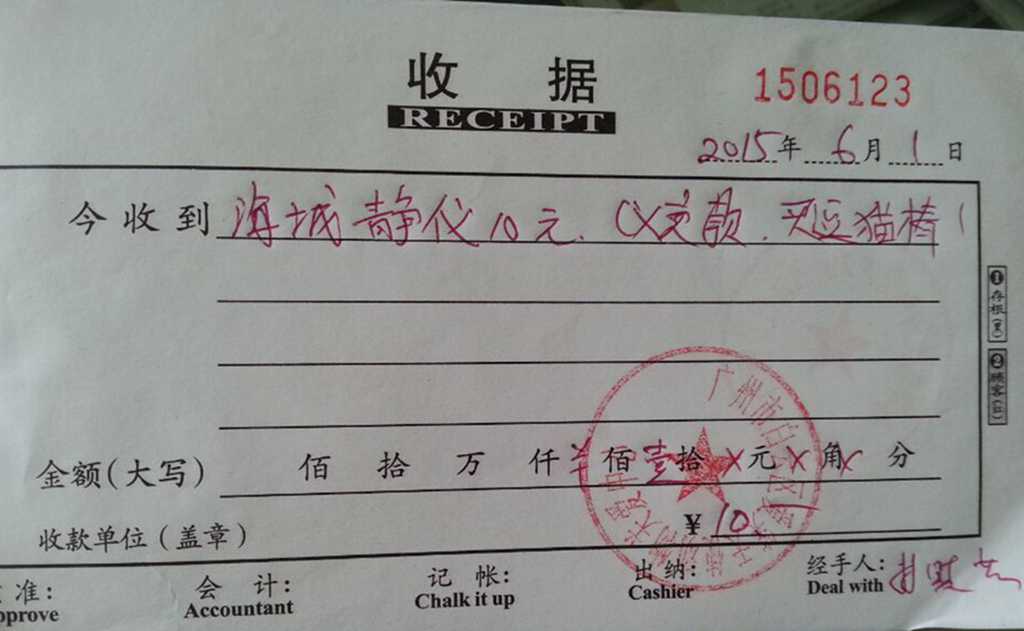 收 据
RECEIPT
1506123
2015年6月1日
今收到 海城静仪10元.以支颜.买逗猫棒
①存根(黑)
②顾客(红)
金额(大写) 佰 拾 万 仟 ¥ 佰 壹拾 X元X角X分
收款单位(盖章) ¥ 10
准: 会 计: 记 帐: 出 纳: 经手人:
pprove Accountant Chalk it up Cashier Deal with
广州市白云区